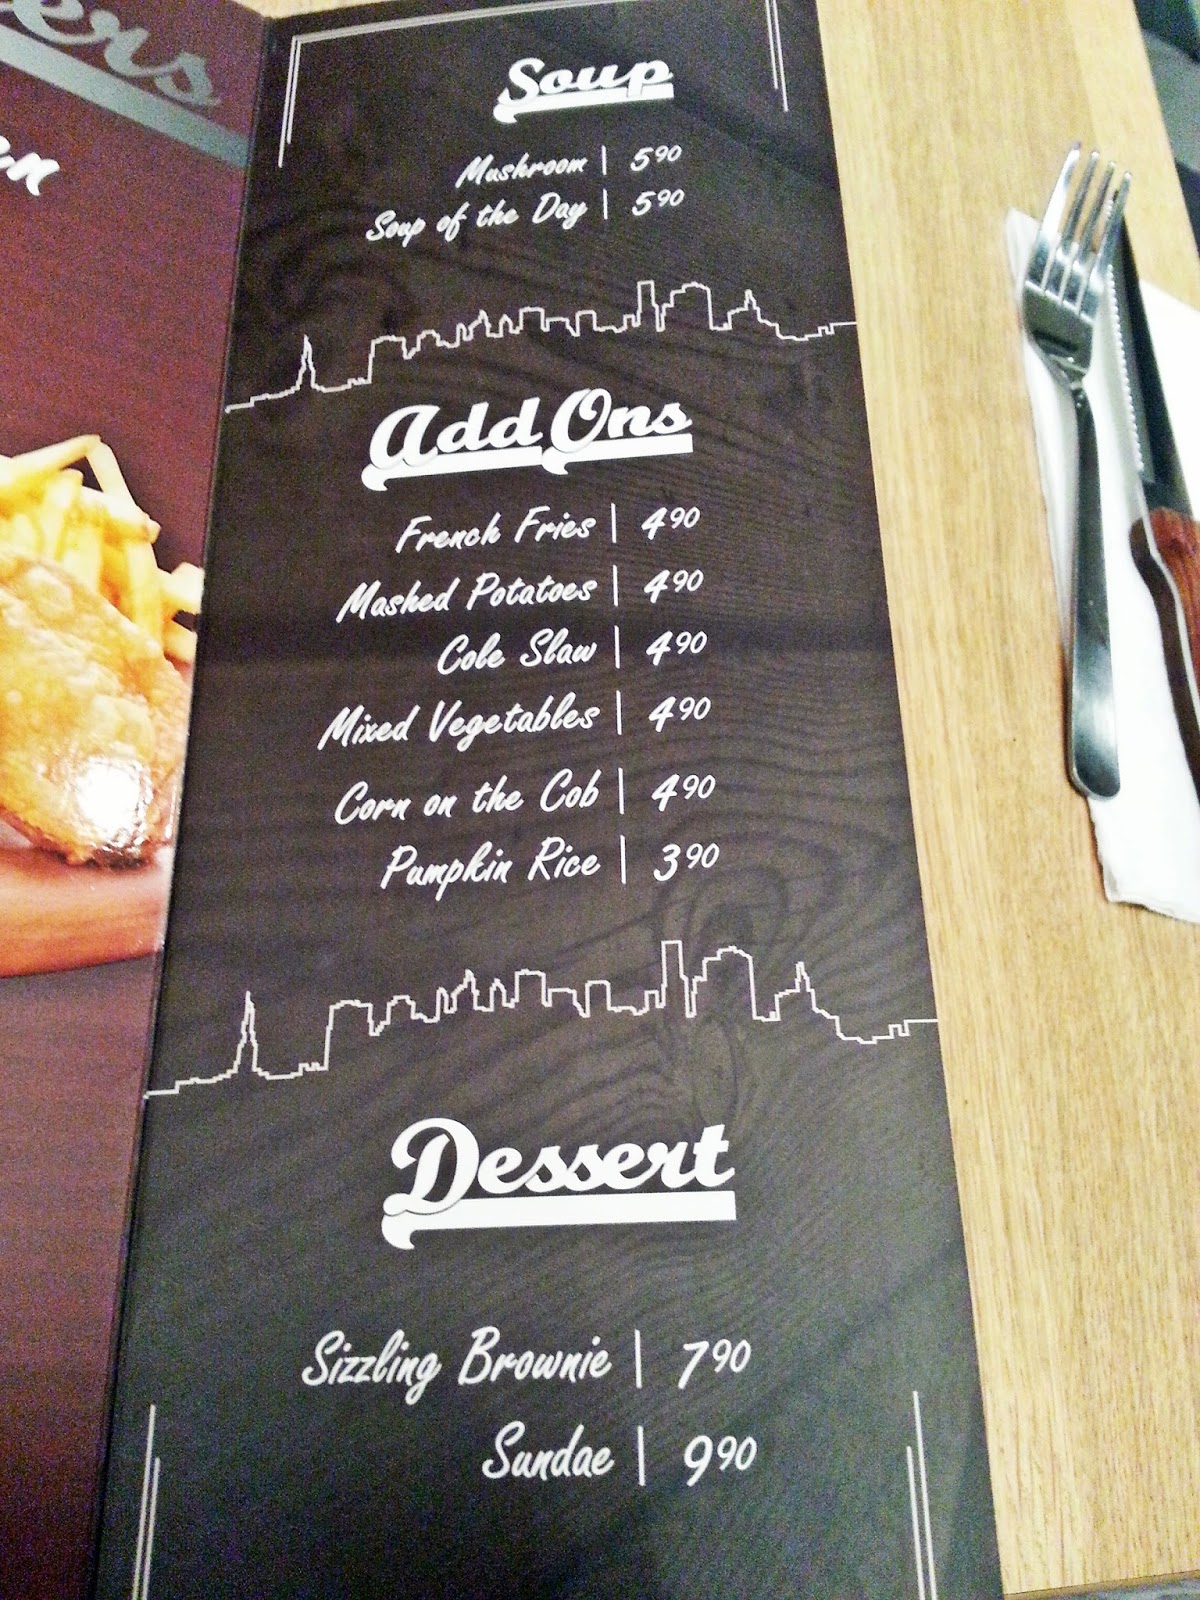 Soup
Mushroom | 5 90
Soup of the Day | 5 90
Add Ons
French Fries | 4 90
Mashed Potatoes | 4 90
Cole Slaw | 4 90
Mixed Vegetables | 4 90
Corn on the Cob | 4 90
Pumpkin Rice | 3 90
Dessert
Sizzling Brownie | 7 90
Sundae | 9 90